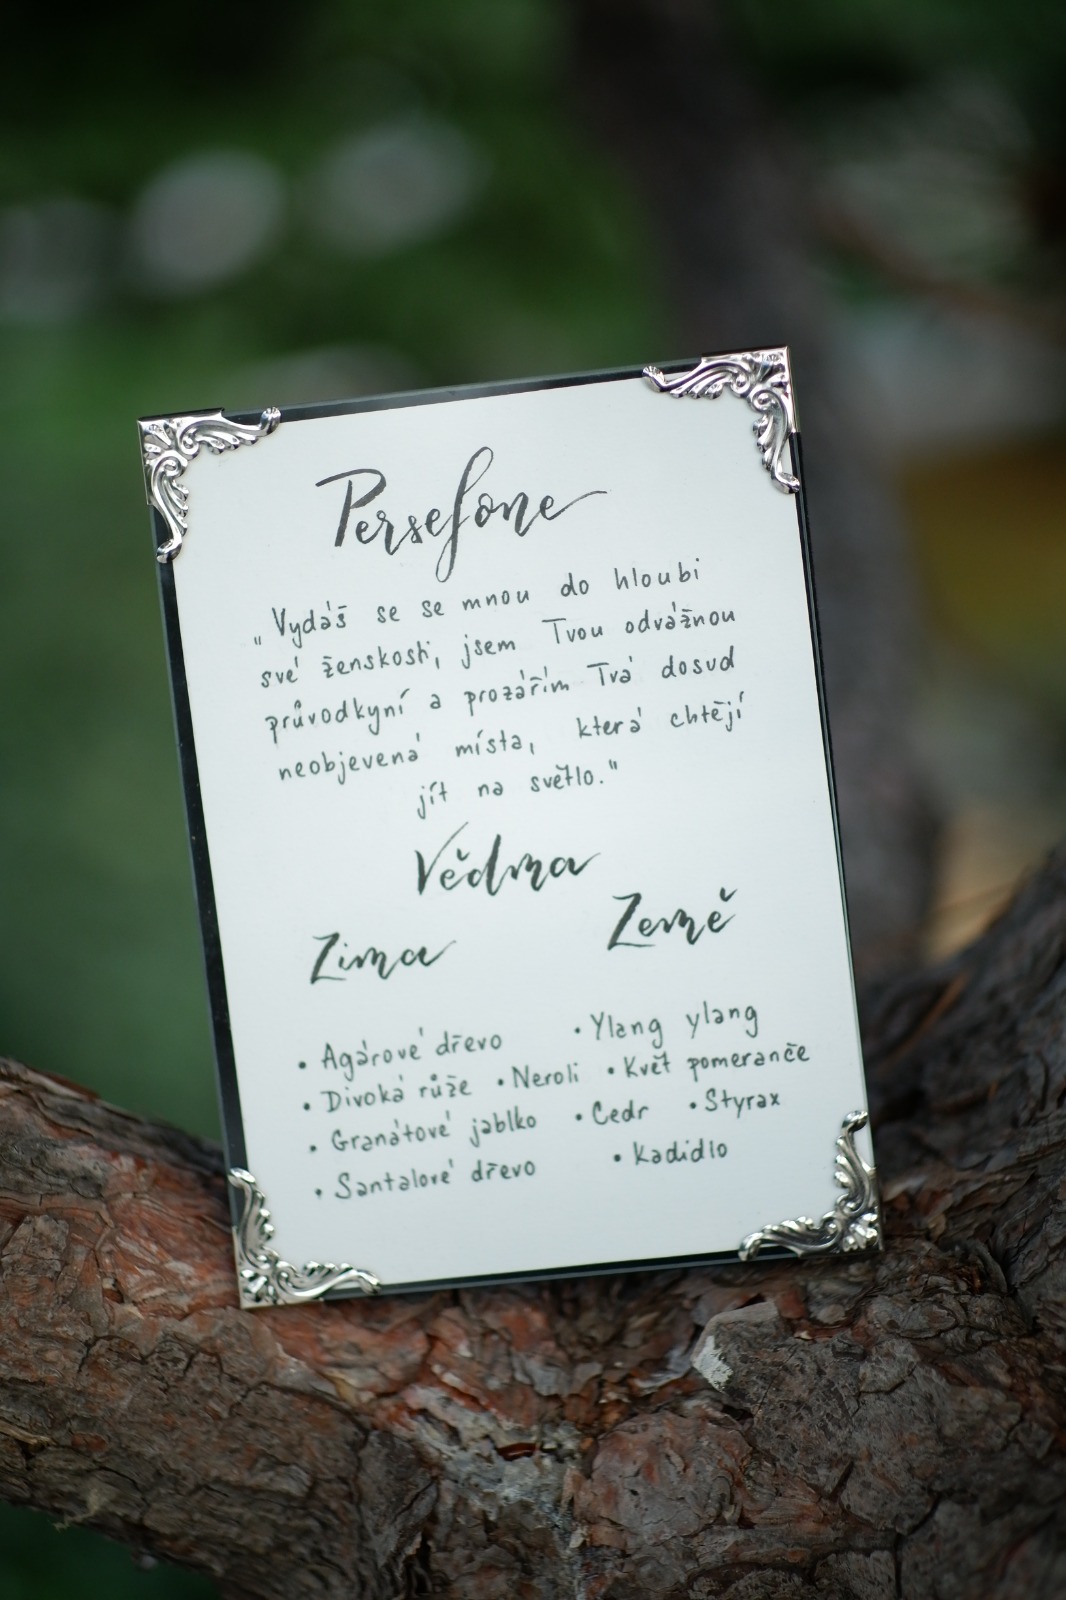 Persefone
„Vydáš se se mnou do hloubi
své ženskosti, jsem Tvou odvážnou
průvodkyní a prozářím Tvá dosud
neobjevená místa, která chtějí
jít na světlo."
Vědma
Zima Země
• Agárové dřevo • Ylang ylang
• Divoká růže • Neroli • Květ pomeranče
• Granátové jablko • Cedr • Styrax
• Santalové dřevo • Kadidlo